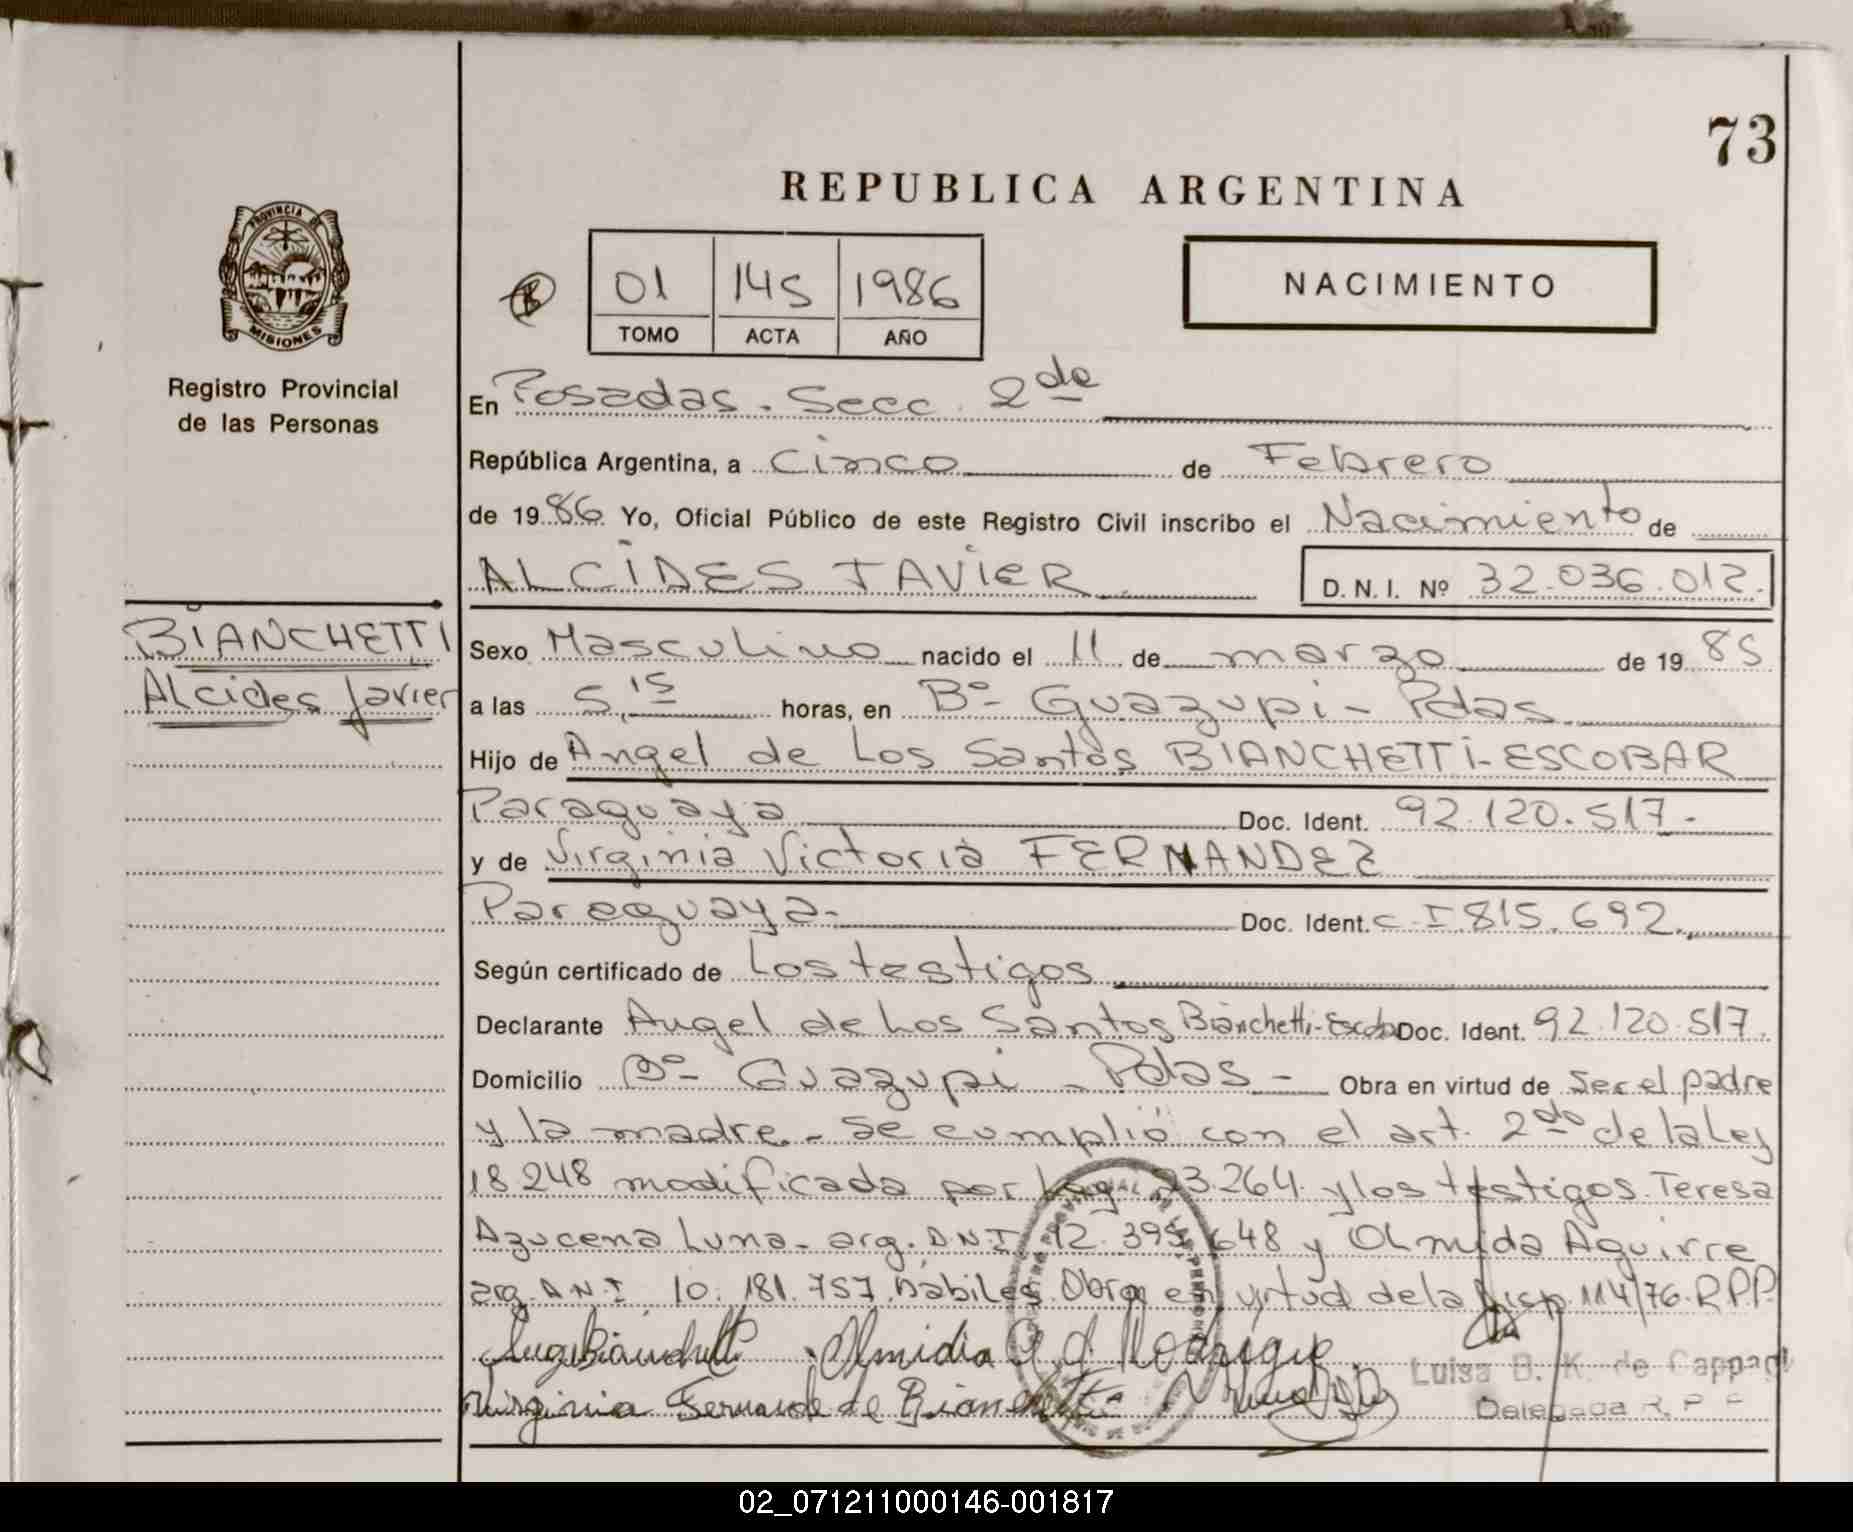 73
REPUBLICA ARGENTINA
PROVINCIA DE
MISIONES
Registro Provincial
de las Personas
B
01 145 1986
TOMO ACTA AÑO
NACIMIENTO
En Posadas. Secc. 2da
República Argentina, a Cinco de Febrero
de 1986 Yo, Oficial Público de este Registro Civil inscribo el Nacimiento de
ALCIDES JAVIER D. N. I. Nº 32.036.012.
BIANCHETTI
Alcides Javier
Sexo Masculino nacido el 11 de marzo de 1985
a las 5,15 horas, en Bº- Guazupi - Pdas.
Hijo de Angel de Los Santos BIANCHETTI-ESCOBAR
Paraguaya Doc. Ident. 92.120.517.-
y de Virginia Victoria FERNANDEZ
Paraguaya.- Doc. Ident. C.I 815.692.
Según certificado de Los testigos
Declarante Angel de Los Santos Bianchetti-Escobar Doc. Ident. 92.120.517.
Domicilio Bº- Guazupi - Pdas - Obra en virtud de Ser el padre
y la madre - Se cumplió con el art. 2do de la Ley
18.248 modificada por Ley 23.264. y los testigos. Teresa
Azucena Luna - arg. D.N.I. 12.395.648 y Olmida Aguirre
arg. D.N.I. 10.181.757. hábiles. Obra en virtud de la Disp. 114/76. R.P.P.
Olmidia Rodrigue
Virginia Fernande de Bianchetti
Luisa B. K. de Cappa
Delegada R. P. P.
02_071211000146-001817